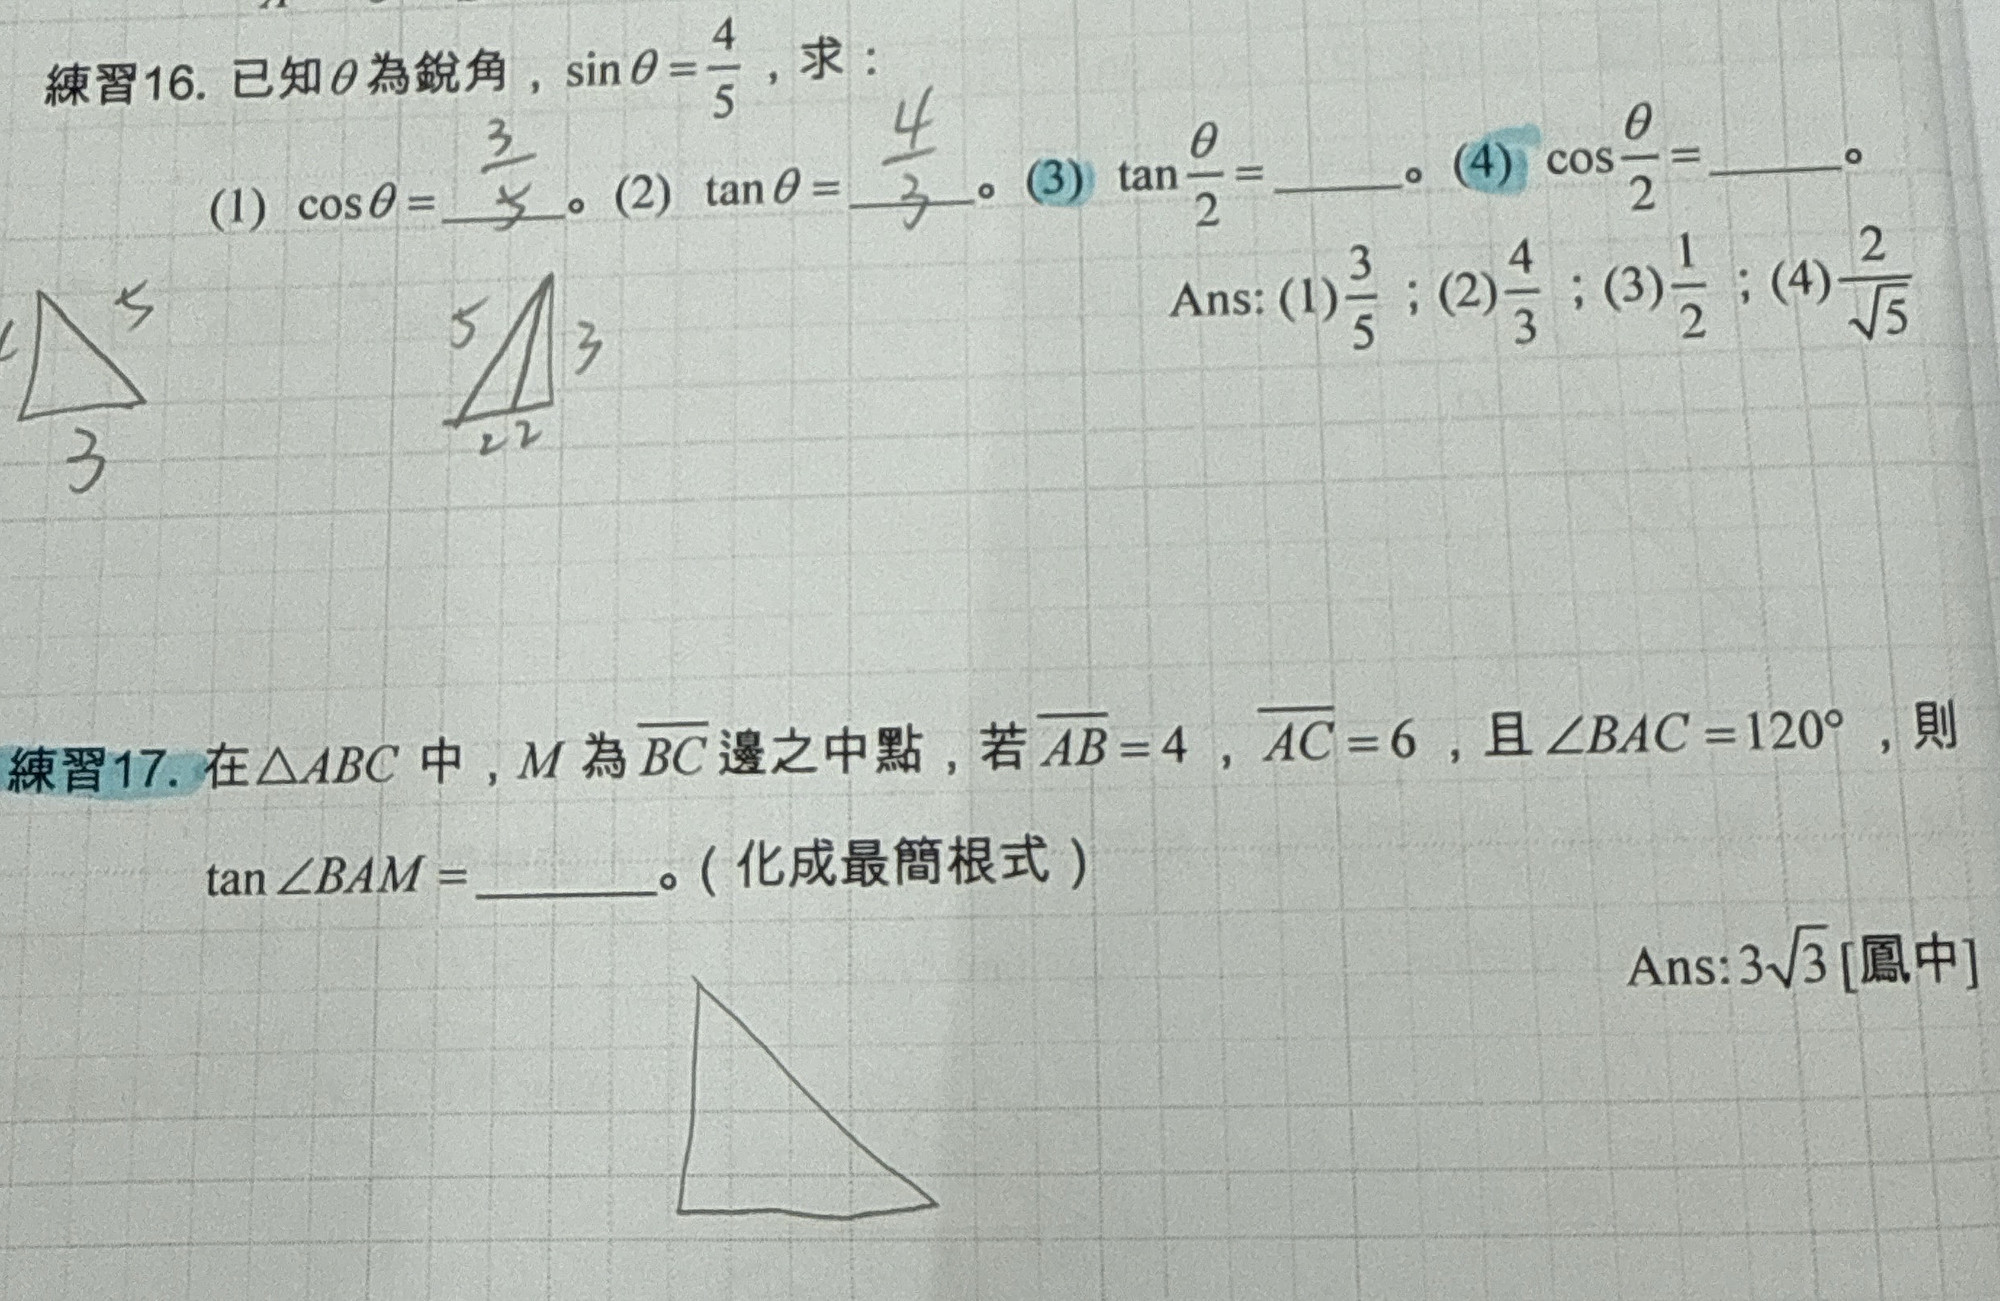 練習16. 已知θ為銳角，sinθ=4/5，求：
(1) cosθ=3/5。(2) tanθ=4/3。(3) tan θ/2=____。(4) cos θ/2=____。
Ans: (1) 3/5；(2) 4/3；(3) 1/2；(4) 2/√5
5
3
5
3
2 2
練習17. 在△ABC 中，M 為 BC 邊之中點，若 AB=4，AC=6，且∠BAC=120°，則
tan∠BAM=______。(化成最簡根式)
Ans: 3√3 [鳳中]